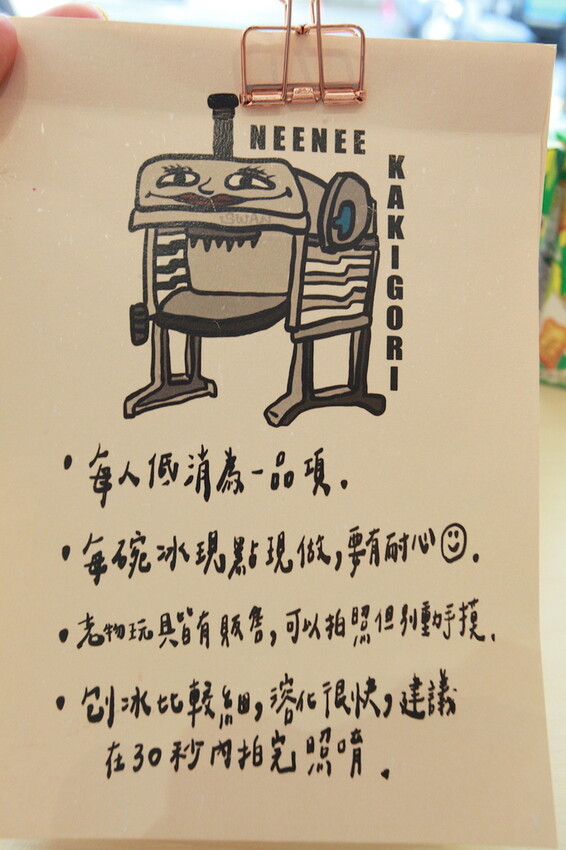 NEENEE
KAKIGORI
• 每人低消為一品項.
• 每碗冰現點現做,要有耐心☺.
• 老物玩具皆有販售,可以拍照但別動手摸.
• 刨冰比較細,溶化很快,建議
在30秒內拍完照唷.